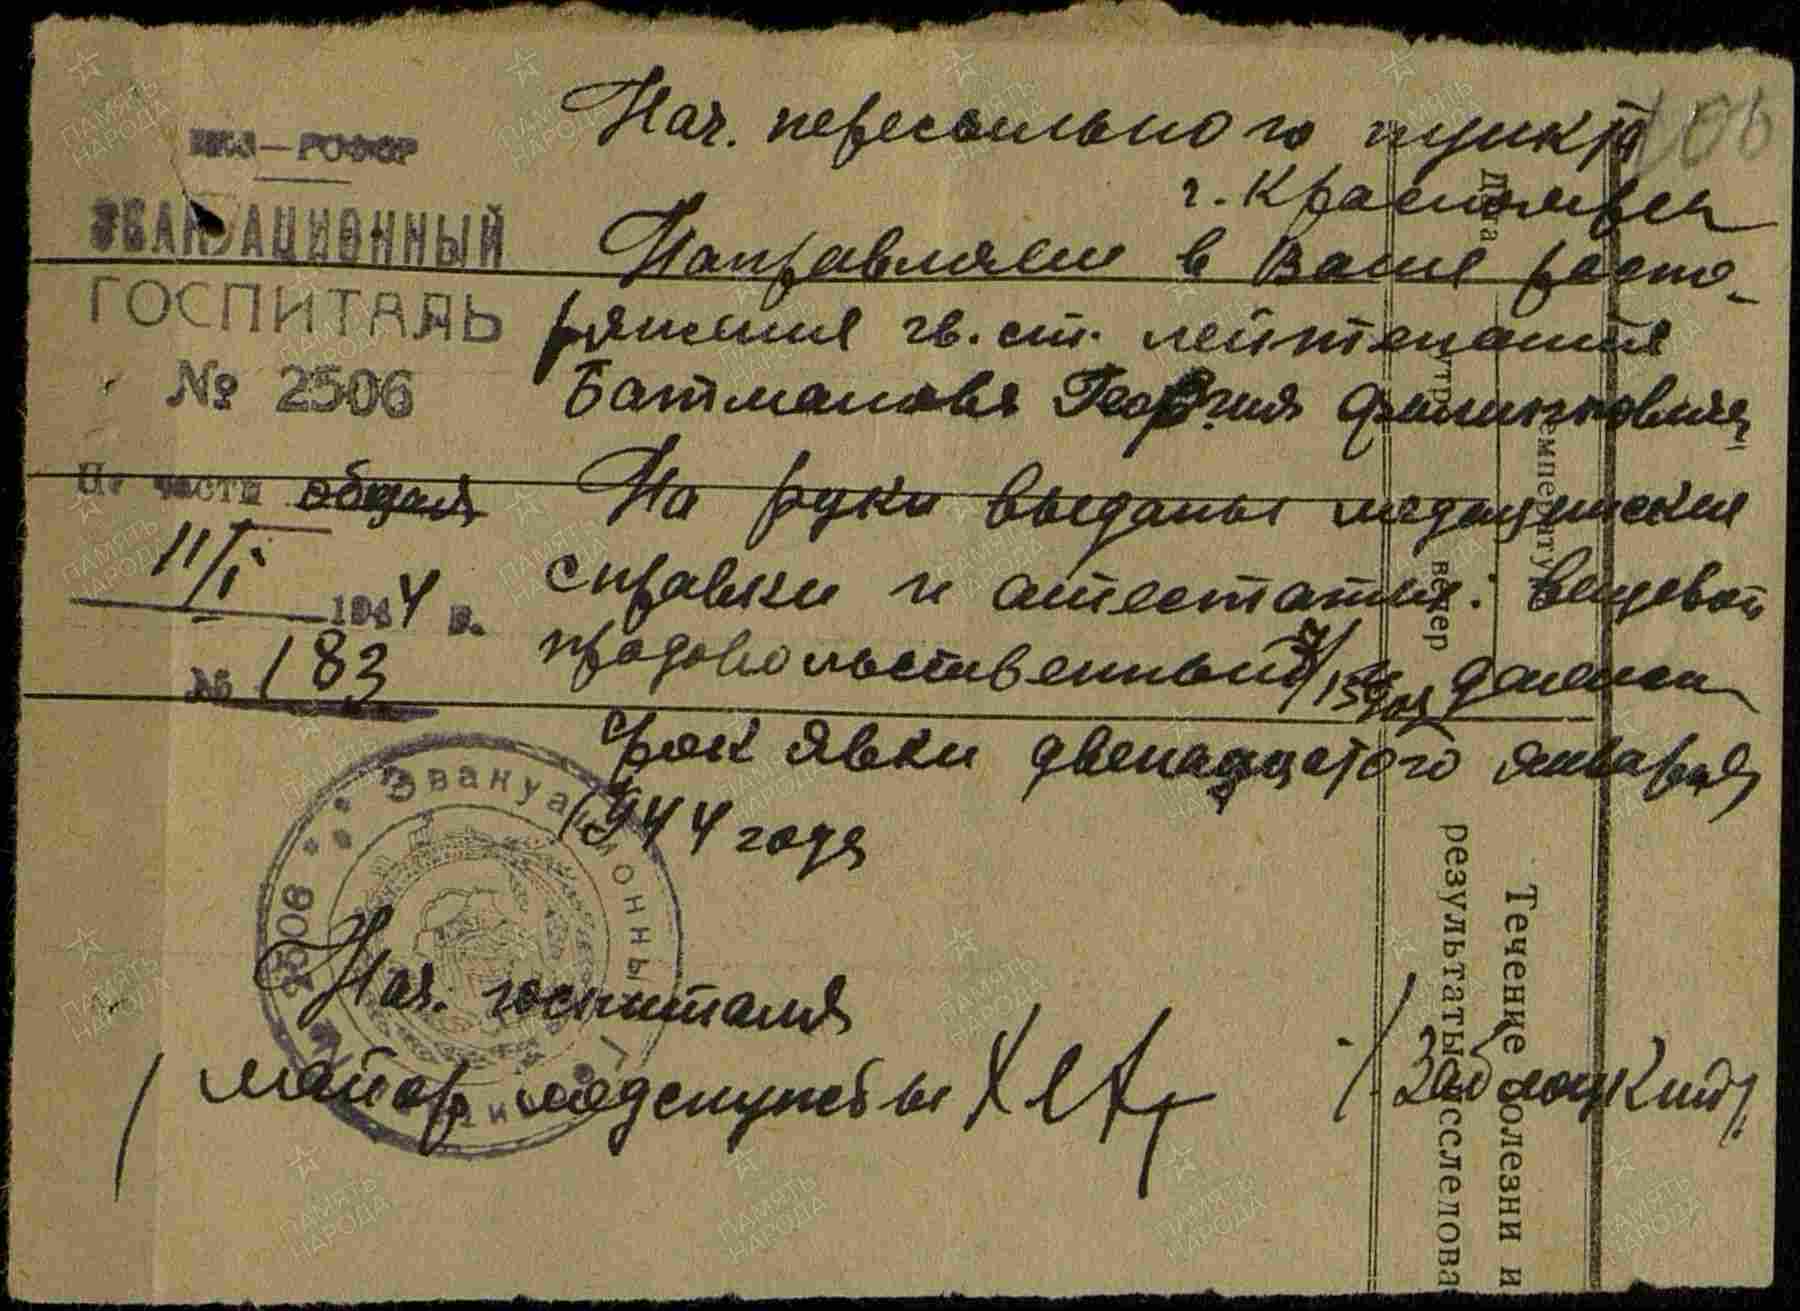 Нач. пересыльного пункта
г. Красноярск
НКЗ—РСФСР
ЭВАКУАЦИОННЫЙ
ГОСПИТАЛЬ
№ 2506
По части общая
11/I 1944 г.
№ 183
Направляем в Ваше распо-
ряжение гв. ст. лейтенанта
Батманова Георгия Филипповича
На руки выданы медицинские
справки и аттестаты: вещевой
продовольственный и денежн
Срок явки двенадцатого января
1944 года
Нач. госпиталя
майор медслужбы
/Заблоцкий/
Эвакуационный
2506
106
Дата
утр
вечер
Температу
Течение болезни и
результаты исследова
ПАМЯТЬ
НАРОДА